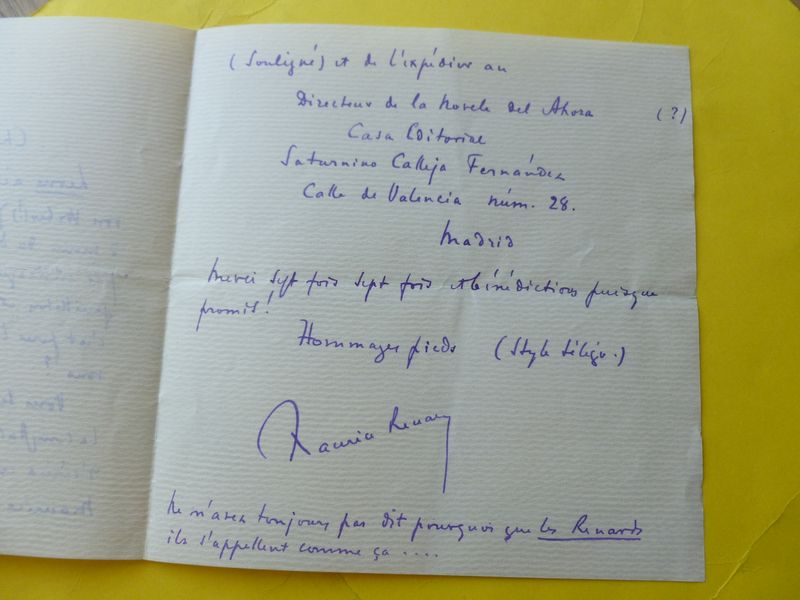 (Souligné) et de l'expédier au
Directeur de la Novela del Ahora (?)
Casa Editorial
Saturnino Calleja Fernández
Calle de Valencia núm. 28.
Madrid
Merci sept fois sept fois et bénédictions puisque
promis!
Hommages pieds (style télégr.)
Maurice Renard
Ne n'avez toujours pas dit pourquoi que les Renards
ils s'appellent comme ça ....